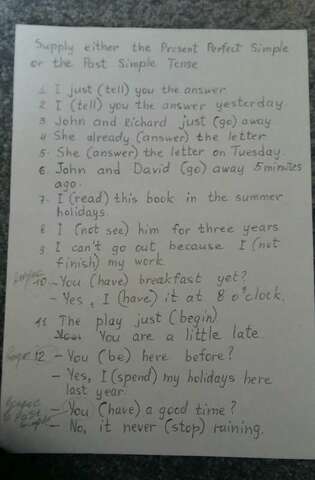 Supply either the Present Perfect Simple
or the Past Simple Tense
1. I just (tell) you the answer.
2 I (tell) you the answer yesterday
3 John and Richard just (go) away
4. She already (answer) the letter
5. She (answer) the letter on Tuesday.
6. John and David (go) away 5 minutes
ago.
7. I (read) this book in the summer
holidays.
8 I (not see) him for three years
9 I can't go out, because I (not
finish) my work.
10 - You (have) breakfast yet?
- Yes, I (have) it at 8 o'clock.
11 The play just (begin).
You are a little late
12 - You (be) here before?
- Yes, I (spend) my holidays here
last year.
- You (have) a good time?
- No, it never (stop) raining.